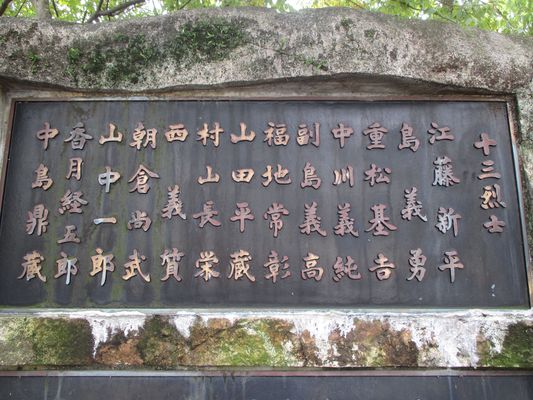 十三烈士
江藤新平
島義勇
重松基吉
中川義純
副島義高
福地常彰
山田平蔵
村山長栄
西義質
朝倉尚武
山中一郎
香月経五郎
中島鼎蔵